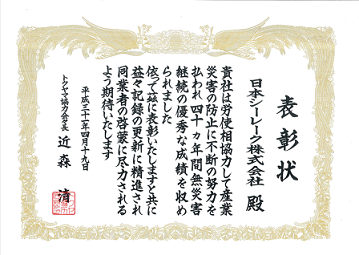 表彰状
日本シーレーク株式会社 殿
貴社は労使相協力して産業
災害の防止に不断の努力を
払われ四十ヵ年間無災害
継続の優秀な成績を収め
られました
依って茲に表彰いたしますと共に
益々記録の更新に精進され
同業者の啓蒙に尽力される
よう期待いたします
平成三十年四月十九日
トクヤマ協力会会長 近森 清